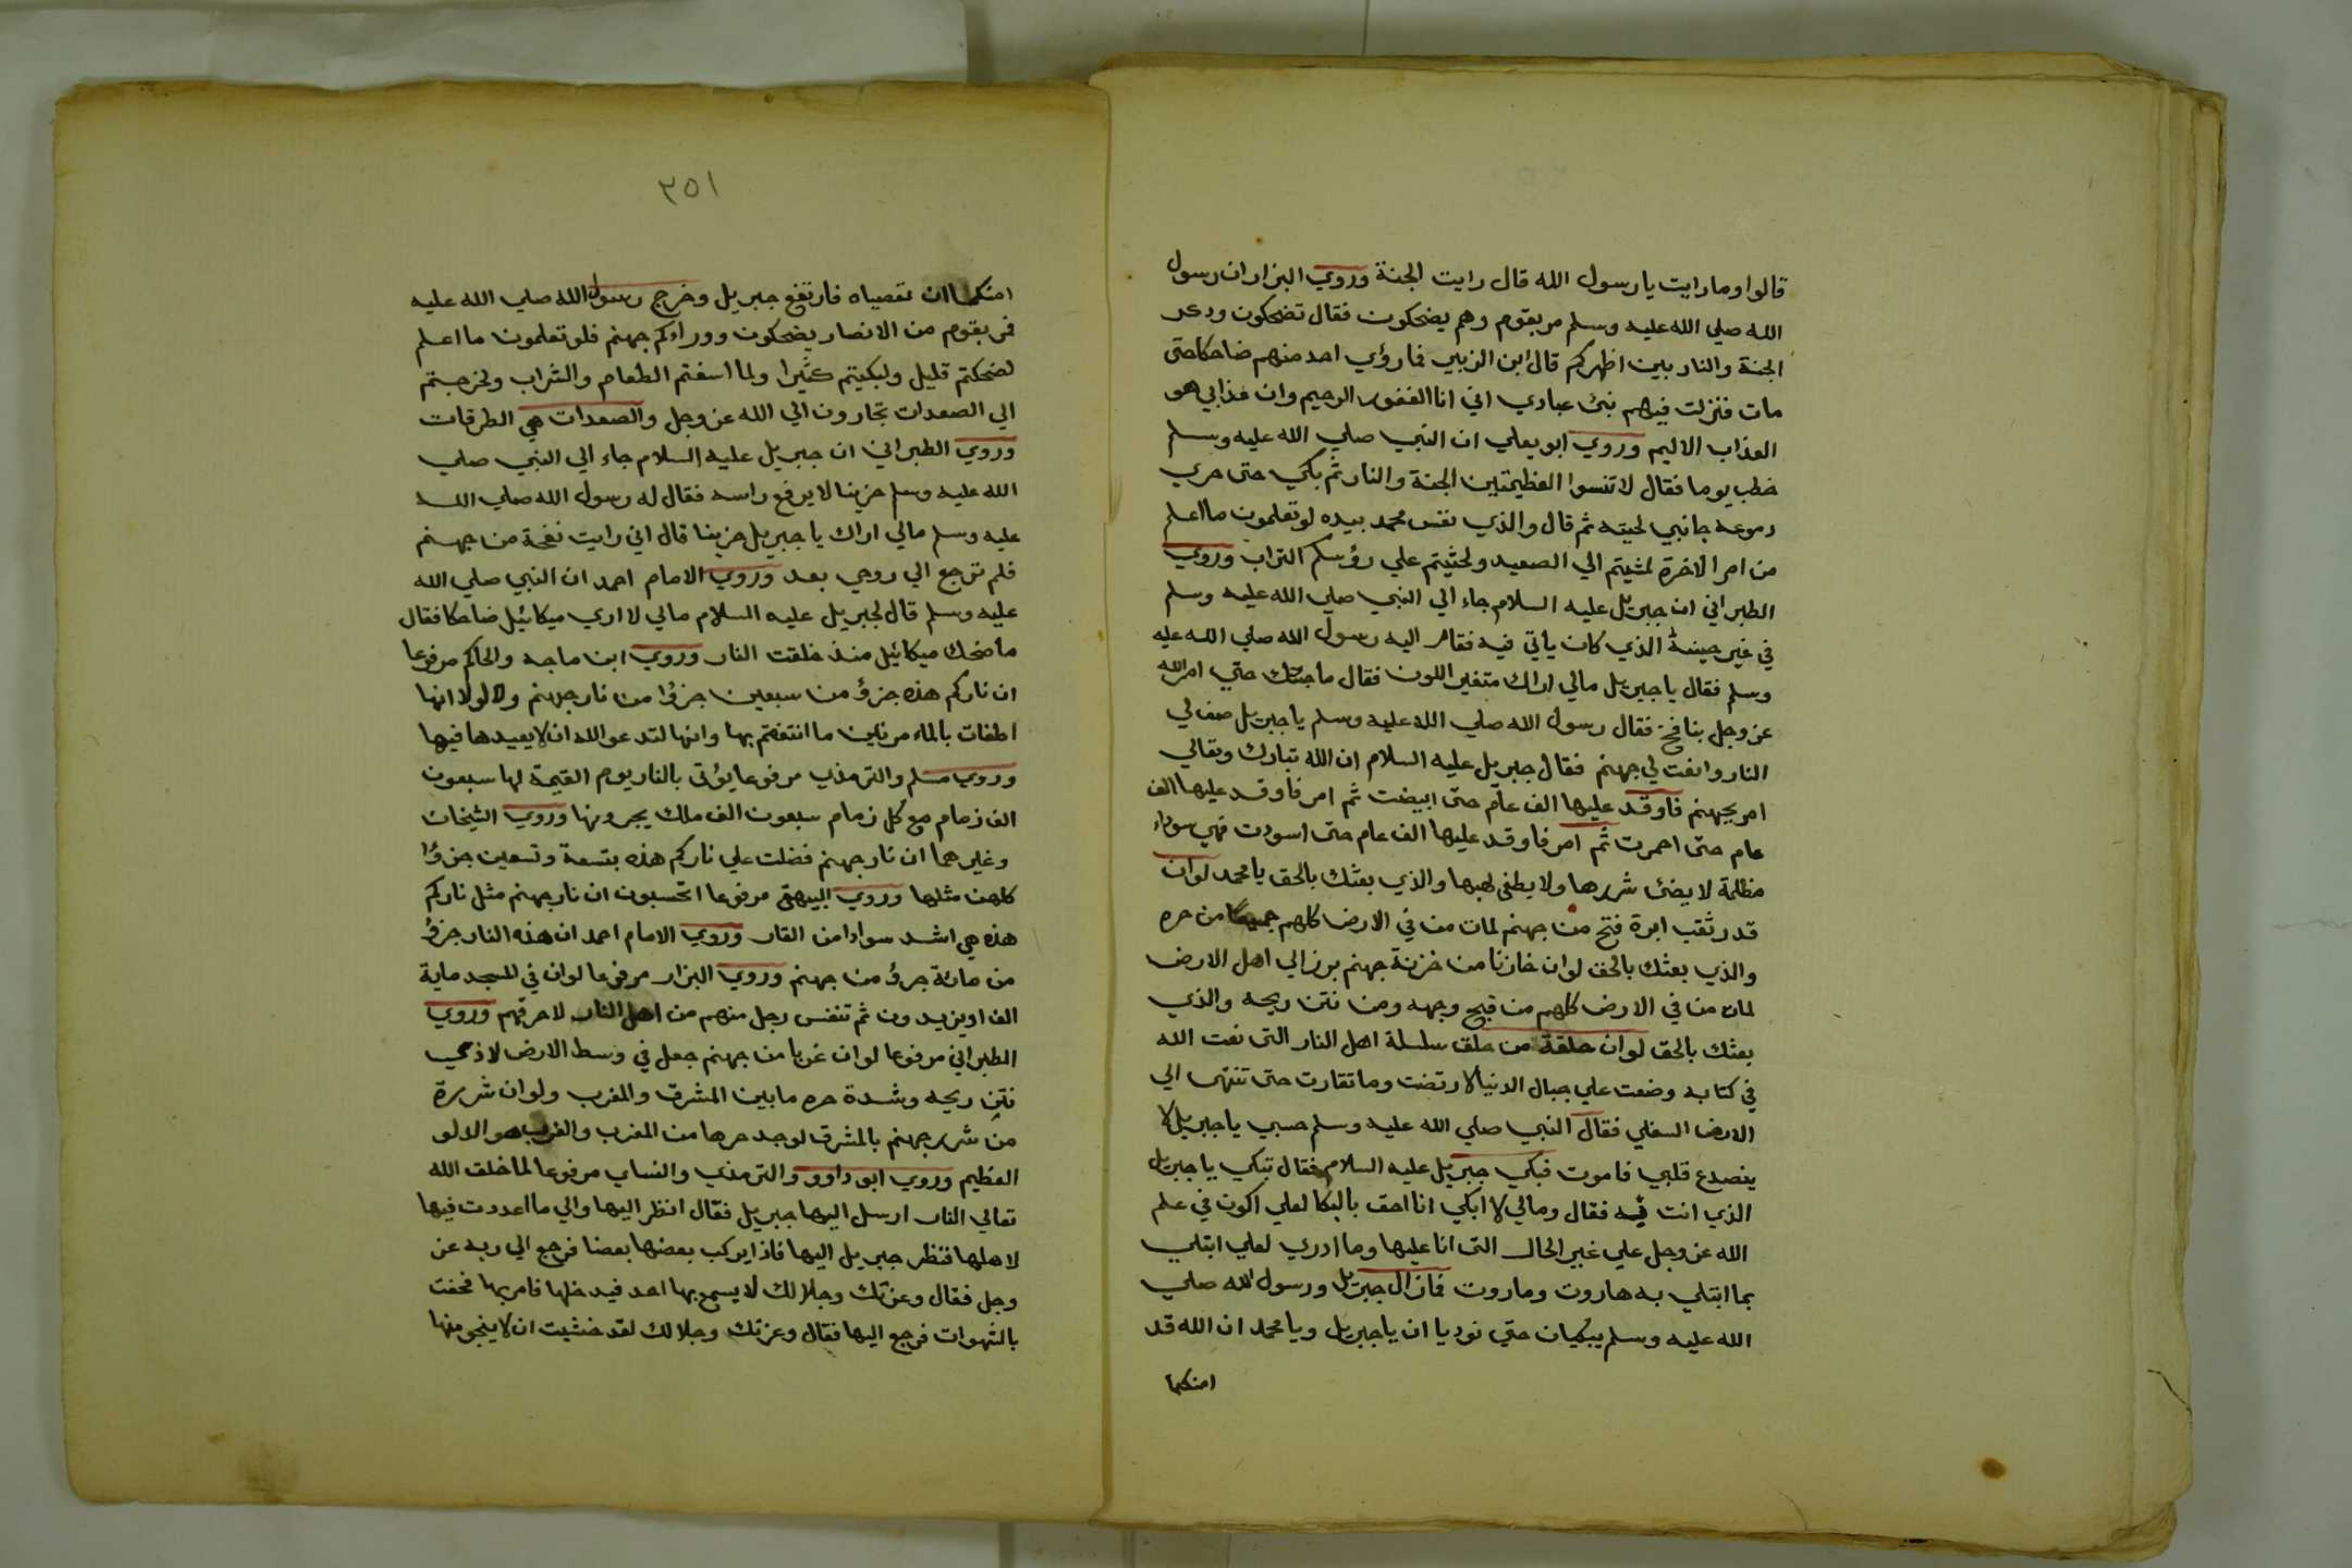 قالوا وما رايت يا رسول الله قال رايت الجنة وروي البزار ان رسول
الله صلي الله عليه وسلم مر بقوم وهم يضحكون فقال تضحكون وذكر
الجنة والنار بين اظهركم قال ابن الزبير فما رؤي احد منهم ضاحكا حتى
مات فنزلت فيهم نبئ عبادي اني انا الغفور الرحيم وان عذابي هو
العذاب الاليم وروي ابو يعلي ان النبي صلي الله عليه وسلم
خطب يوما فقال لا تنسوا العظيمتين الجنة والنار ثم بكي حتى جري
دموعه جانبي لحيته ثم قال والذي نفس محمد بيده لو تعلمون ما اعلم
من امر الاخرة لمشيتم الي الصعيد ولحثيتم علي رؤسكم التراب وروي
الطبراني ان جبريل عليه السلام جاء الي النبي صلي الله عليه وسلم
في غير حينه الذي كان ياتي فيه فقام اليه رسول الله صلي الله عليه
وسلم فقال يا جبريل مالي اراك متغير اللون فقال ما جئتك حتي امر الله
عز وجل بنافخ فقال رسول الله صلي الله عليه وسلم يا جبريل صف لي
النار وانعت لي جهنم فقال جبريل عليه السلام ان الله تبارك وتعالي
امر بجهنم فاوقد عليها الف عام حتى ابيضت ثم امر فاوقد عليها الف
عام حتى احمرت ثم امر فاوقد عليها الف عام حتى اسودت فهي سوداء
مظلمة لا يضئ شررها ولا يطفي لهبها والذي بعثك بالحق يا محمد لو ان
قدر ثقب ابرة فتح من جهنم لمات من في الارض كلهم جميعا من حره
والذي بعثك بالحق لو ان خازنا من خزنة جهنم برز الي اهل الارض
لمات من في الارض كلهم من قبح وجهه ومن نتن ريحه والذي
بعثك بالحق لو ان حلقة من حلق سلسلة اهل النار التى نعت الله
في كتابه وضعت علي جبال الدنيا لارتضت وما تقارت حتى تنتهى الي
الارض السفلي فقال النبي صلي الله عليه وسلم حسبي يا جبريل لا
ينصدع قلبي فاموت فبكي جبريل عليه السلام فقال تبكي يا جبريل
الذي انت فيه فقال ومالي لا ابكي انا احق بالبكا لعلي اكون في علم
الله عز وجل علي غير الحال التى انا عليها وما ادري لعلي ابتلي
بما ابتلي به هاروت وماروت فما زال جبريل ورسول الله صلي
الله عليه وسلم يبكيان حتي نوديا ان يا جبريل ويا محمد ان الله قد
امنكما
٣٥١
امنكما ان تعصياه فارتفع جبريل وخرج رسول الله صلي الله عليه
فمر بقوم من الانصار يضحكون ووراءكم جهنم فلو تعلمون ما اعلم
لضحكتم قليل ولبكيتم كثيرا ولما اسغتم الطعام والشراب ولخرجتم
الي الصعدات تجارون الي الله عز وجل والصعدات هي الطرقات
وروي الطبراني ان جبريل عليه السلام جاء الي النبي صلي
الله عليه وسلم حزينا لا يرفع راسه فقال له رسول الله صلي الله
عليه وسلم مالي اراك يا جبريل حزينا قال اني رايت نفخة من جهنم
فلم ترجع الي روحي بعد وروي الامام احمد ان النبي صلي الله
عليه وسلم قال لجبريل عليه السلام مالي لا اري ميكائيل ضاحكا فقال
ما ضحك ميكائيل منذ خلقت النار وروي ابن ماجه والحاكم مرفوعا
ان ناركم هذه جزؤ من سبعين جزؤا من نار جهنم ولولا انها
اطفات بالماء مرتين ما انتفعتم بها وانها لتدعو الله ان لا يعيدها فيها
وروي مسلم والترمذي مرفوعا يؤتى بالنار يوم القيمة لها سبعون
الف زمام مع كل زمام سبعون الف ملك يجرونها وروي الشيخان
وغيرهما ان نار جهنم فضلت علي ناركم هذه بتسعة وتسعين جزؤا
كلهن مثلها وروي البيهقي مرفوعا اتحسبون ان نار جهنم مثل ناركم
هذه هي اشد سوادا من القار وروي الامام احمد ان هذه النار جزؤ
من مائة جزؤ من جهنم وروي البزار مرفوعا لو ان في المسجد ماية
الف او يزيدون ثم تنفس رجل منهم من اهل النار لاحرقهم وروي
الطبراني مرفوعا لو ان غربا من جهنم جعل في وسط الارض لاذي
نتن ريحه وشدة حره ما بين المشرق والمغرب ولو ان شررة
من شرر جهنم بالمشرق لوجد حرها من المغرب والغرب هو الدلو
العظيم وروي ابو داوو والترمذي والنساي مرفوعا لما خلق الله
تعالي النار ارسل اليها جبريل فقال انظر اليها والي ما اعددت فيها
لاهلها فنظر جبريل اليها فاذا يركب بعضها بعضا فرجع الي ربه عز
وجل فقال وعزتك وجلالك لا يسمع بها احد فيدخلها فامر بها فحفت
بالشهوات فرجع اليها فقال وعزتك وجلالك لقد خشيت ان لا ينجو منها